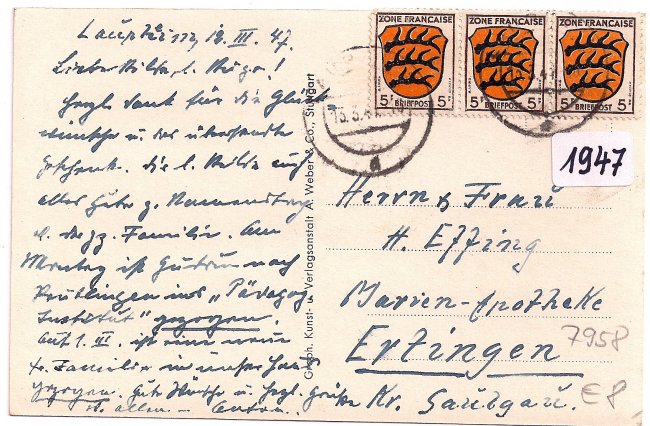 Laupheim, 12. III. 47.
Liebe Hilde, l. Hugo!
Herzl. Dank für die Glück
wünsche u. das übersandte
Geschenk. die l. Hilde auf
alles Gute z. Namenstag
u. der gz. Familie. Am
Montag ist Gudrun nach
Reutlingen ins „Pädagog.
Institut" gezogen.
Auf 1. III. ist eine neue
Familie in unser Haus
gezogen. Gute Wünsche u. herzl. Grüße
allen – Anton.
Graph. Kunst- u. Verlagsanstalt A. Weber & Co., Stuttgart
ZONE FRANÇAISE ZONE FRANÇAISE ZONE FRANÇAISE
5 BRIEFPOST 5 5 BRIEFPOST 5 5 BRIEFPOST 5
13.3.47
1947
Herrn & Frau
H. Effing
Marien-Apotheke
Ertingen
7958
Kr. Saulgau.
€8